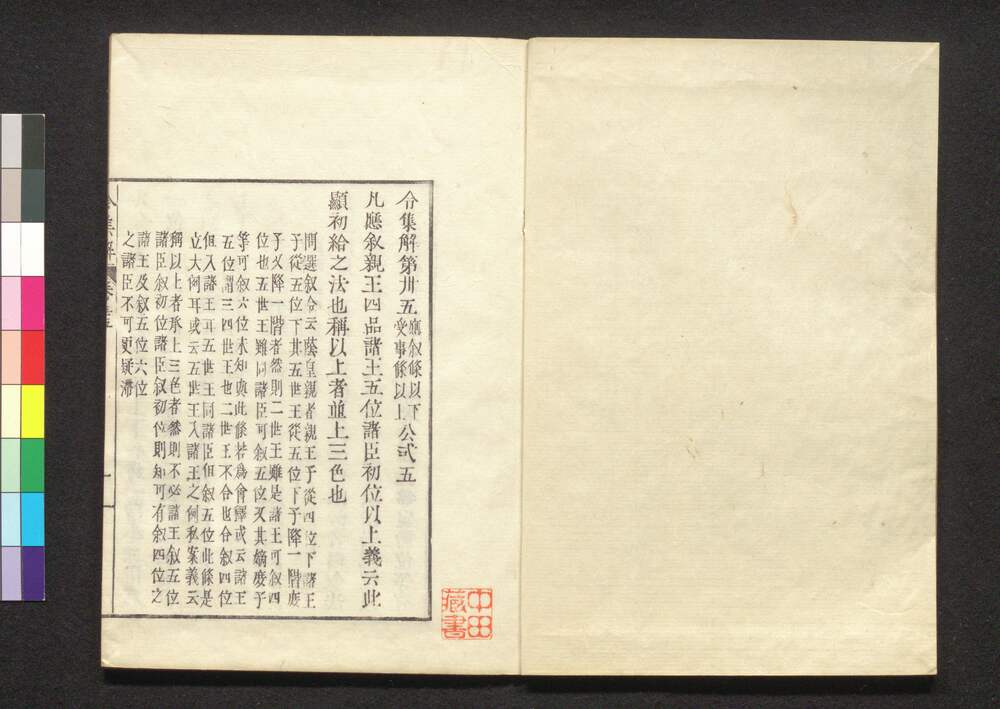 令集解第卅五 應叙條以下受事條以上 公式五
凡應叙親王四品諸王五位諸臣初位以上義云此
顯初給之法也稱以上者並上三色也
問選叙令云蔭皇親者親王子從四位下諸王
子從五位下其五世王從五位下子降一階庶
子又降一階者然則二世王雖是諸王可叙四
位也五世王雖同諸臣可叙五位又其嫡庶子
等可叙六位未知與此條若爲會釋或云諸王
五位謂三四世王也二世王不合也合叙四位
但入諸王耳五世王同諸臣但叙五位此條是
立大例耳或云五世王入諸王之例私案義云
稱以上者承上三色者然則不必諸王叙五位
諸臣叙初位諸臣叙初位則知可有叙四位之
諸王及叙五位六位
之諸臣不可更疑滯
令集解 卷
一
中田
藏書